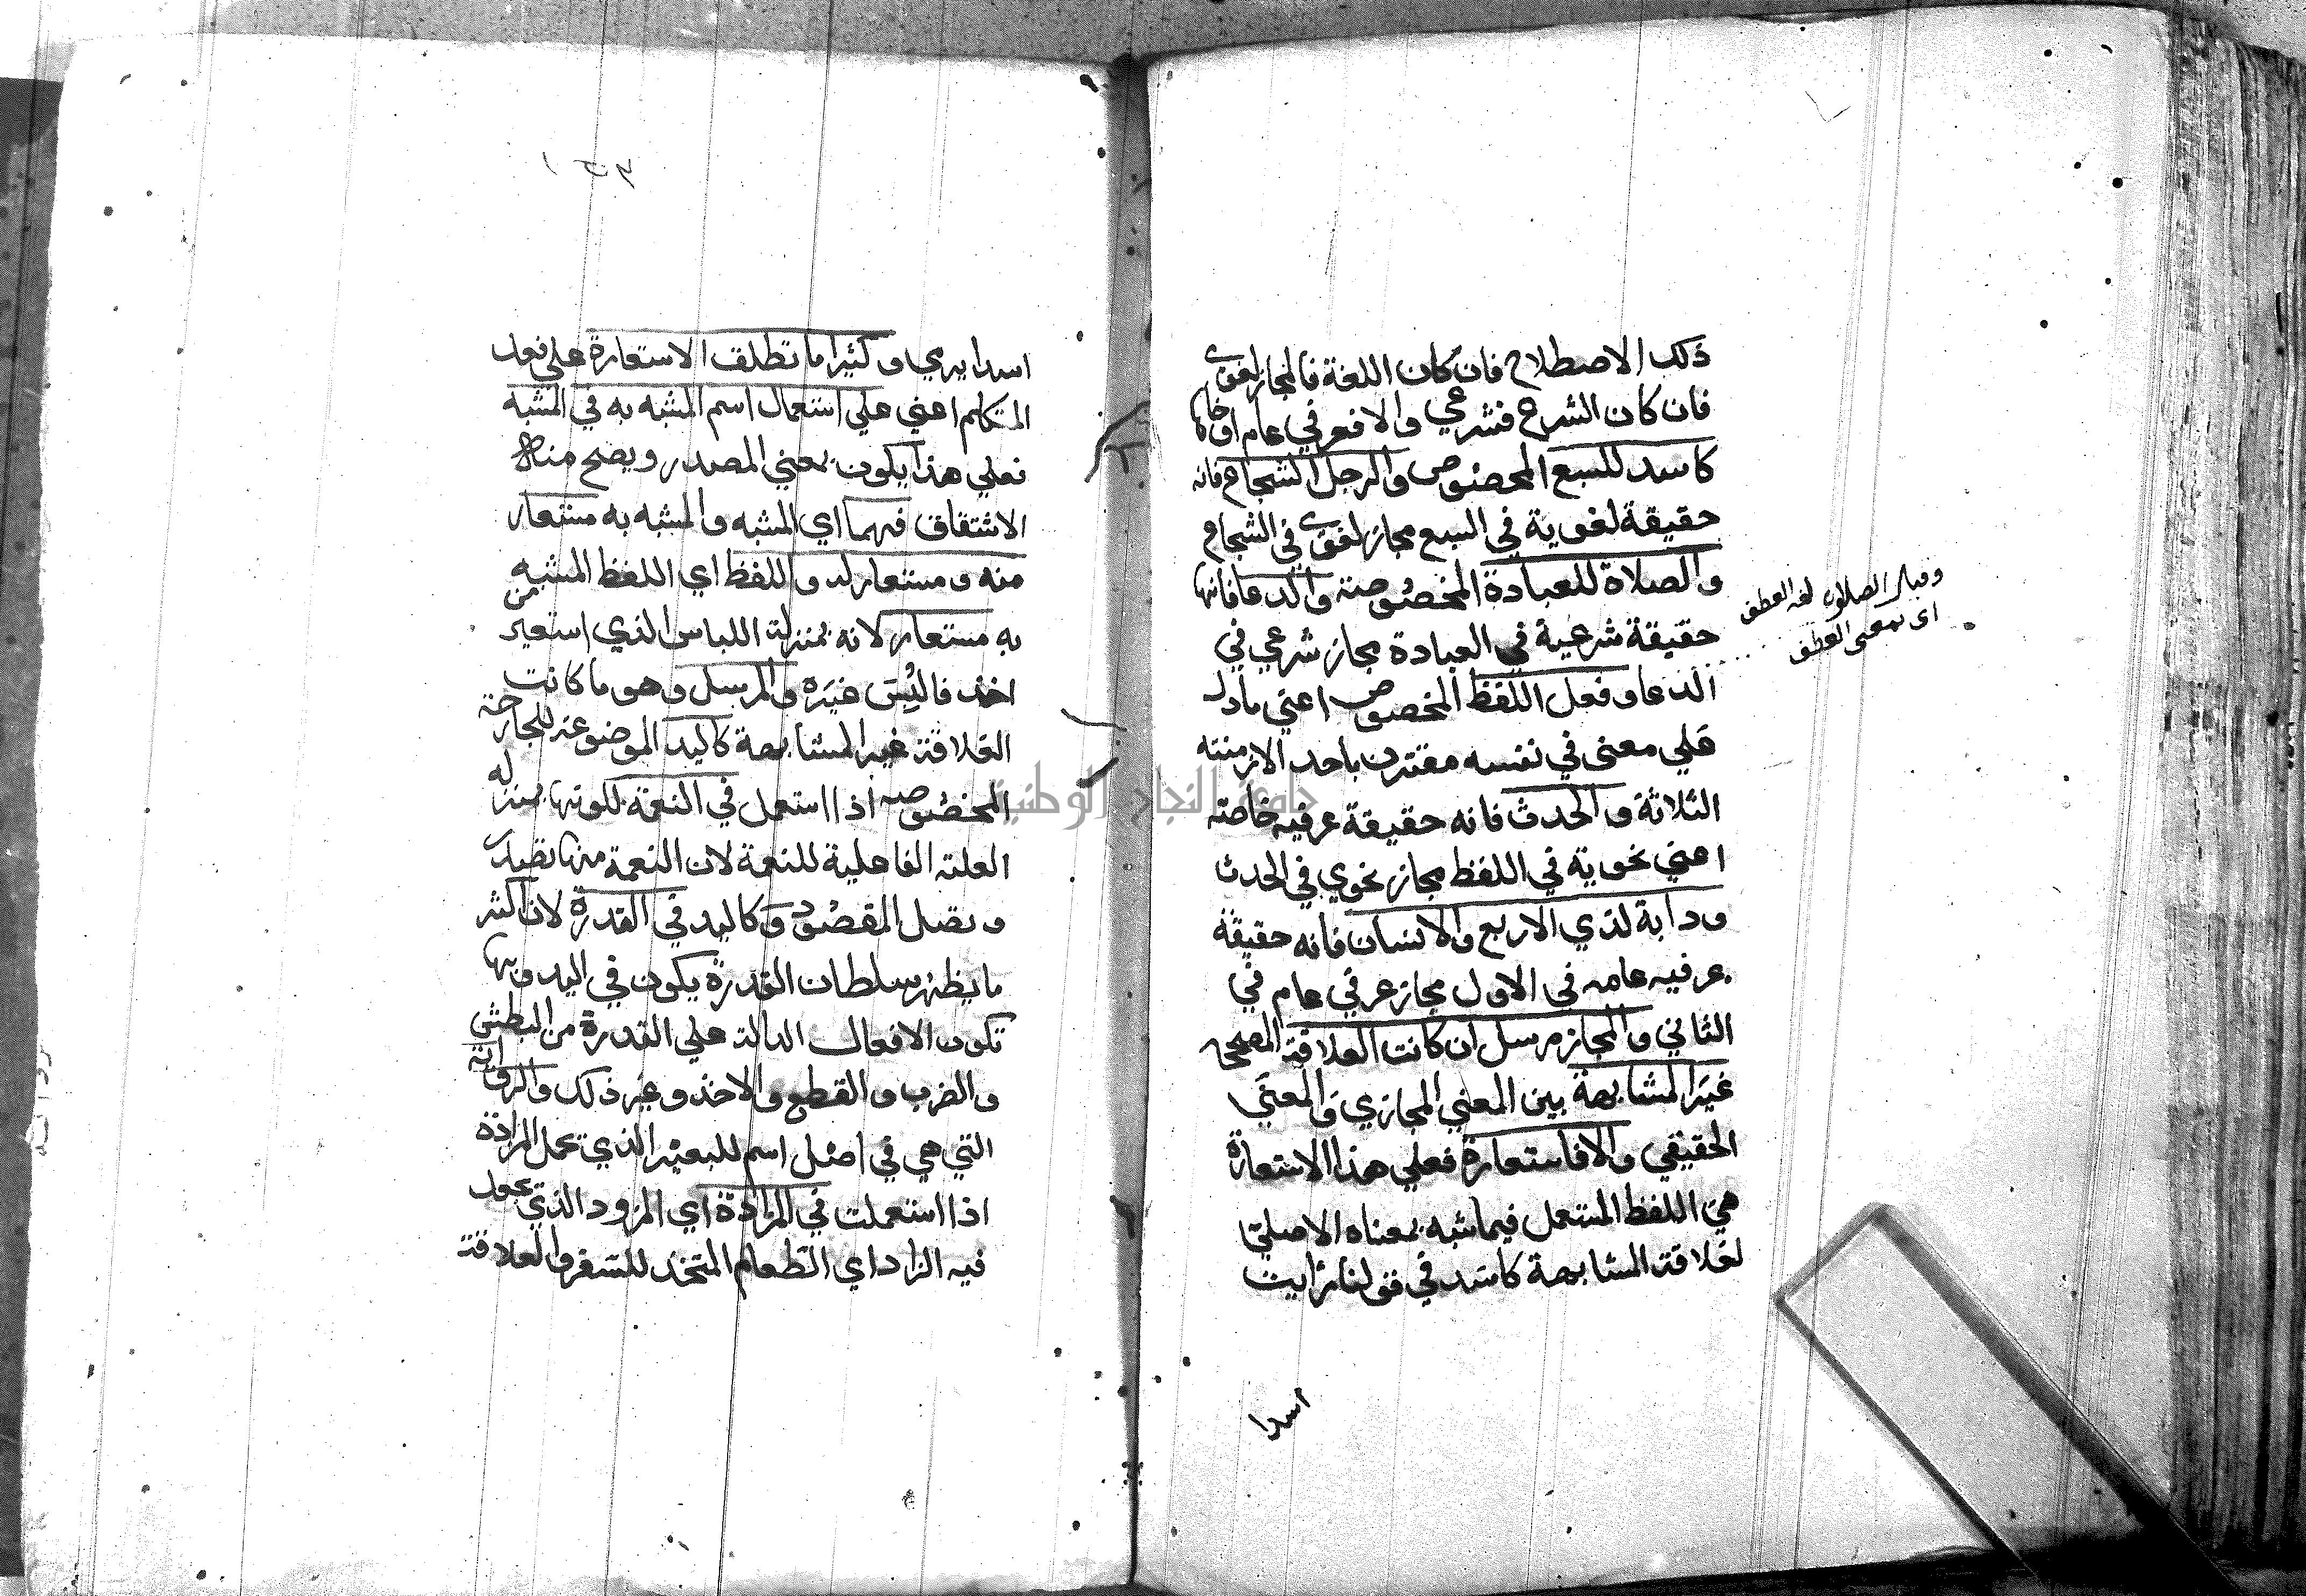 ذلك الاصطلاح فان كان اللغة فالمجاز لغوي
فان كان الشرع فشرعي والا فعرفي عام او خاص
كاسد للسبع المخصوص والرجل الشجاع فانه
حقيقة لغوية في السبع مجاز لغوي في الشجاع
والصلاة للعبادة المخصوصة والدعا فانها
حقيقة شرعية في العبادة مجاز شرعي في
الدعا وفعل اللفظ المخصوص اعني ما دل
علي معنى في نفسه مقترن باحد الازمنته
الثلاثة والحدث فانه حقيقة عرفيه خاصته
اعني نحوية في اللفظ مجاز نحوي في الحدث
ودابة لذي الاربع والانسان فانه حقيقة
عرفيه عامه في الاول مجاز عرفي عام في
الثاني والمجاز مرسل ان كانت العلاقة المصححه
غير المشابهة بين المعني المجازي والمعني
الحقيقي والا فاستعارة فعلي هذا الاستعارة
هي اللفظ المستعمل فيما شبه بمعناه الاصلي
لعلاقة المشابهة كاسد في قولنا رايت
اسدا
لغة العطف
اى بمعنى العطف
جامعة النجاح الوطنية
اسدا يرمي وكثيرا ما تطلق الاستعارة علي فعل
المتكلم اعني علي استعمال اسم المشبه به في المشبه
فعلي هذا يكون بمعني المصدر ويصح منه
الاشتقاق فهما اي المشبه والمشبه به مستعار
منه ومستعار له واللفظ اي اللفظ المشبه
به مستعار لانه بمنزلة اللباس الذي استعير من
اخذ فالبس غيره والمرسل وهو ما كانت
العلاقة غير المشابهة كاليد الموضوعة للجارحة
المخصوصه اذا استعمل في النعمة لكونها بمنزله
العلة الفاعلية للنعمة لان النعمة منها تصدر
وتصل المقصود وكاليد في القدرة لان اكثر
ما يظهر سلطان القدرة يكون في اليد وبها
تكون الافعال الدالة علي القدرة من البطش
والضرب والقطع والاخذ وغير ذلك والراوية
التي هي في اصل اسم للبعير الذي يحمل المزادة
اذا استعملت في المزادة اي المزود الذي يجعل
فيه الزاد اي الطعام المتخذ للسفر والعلاقة